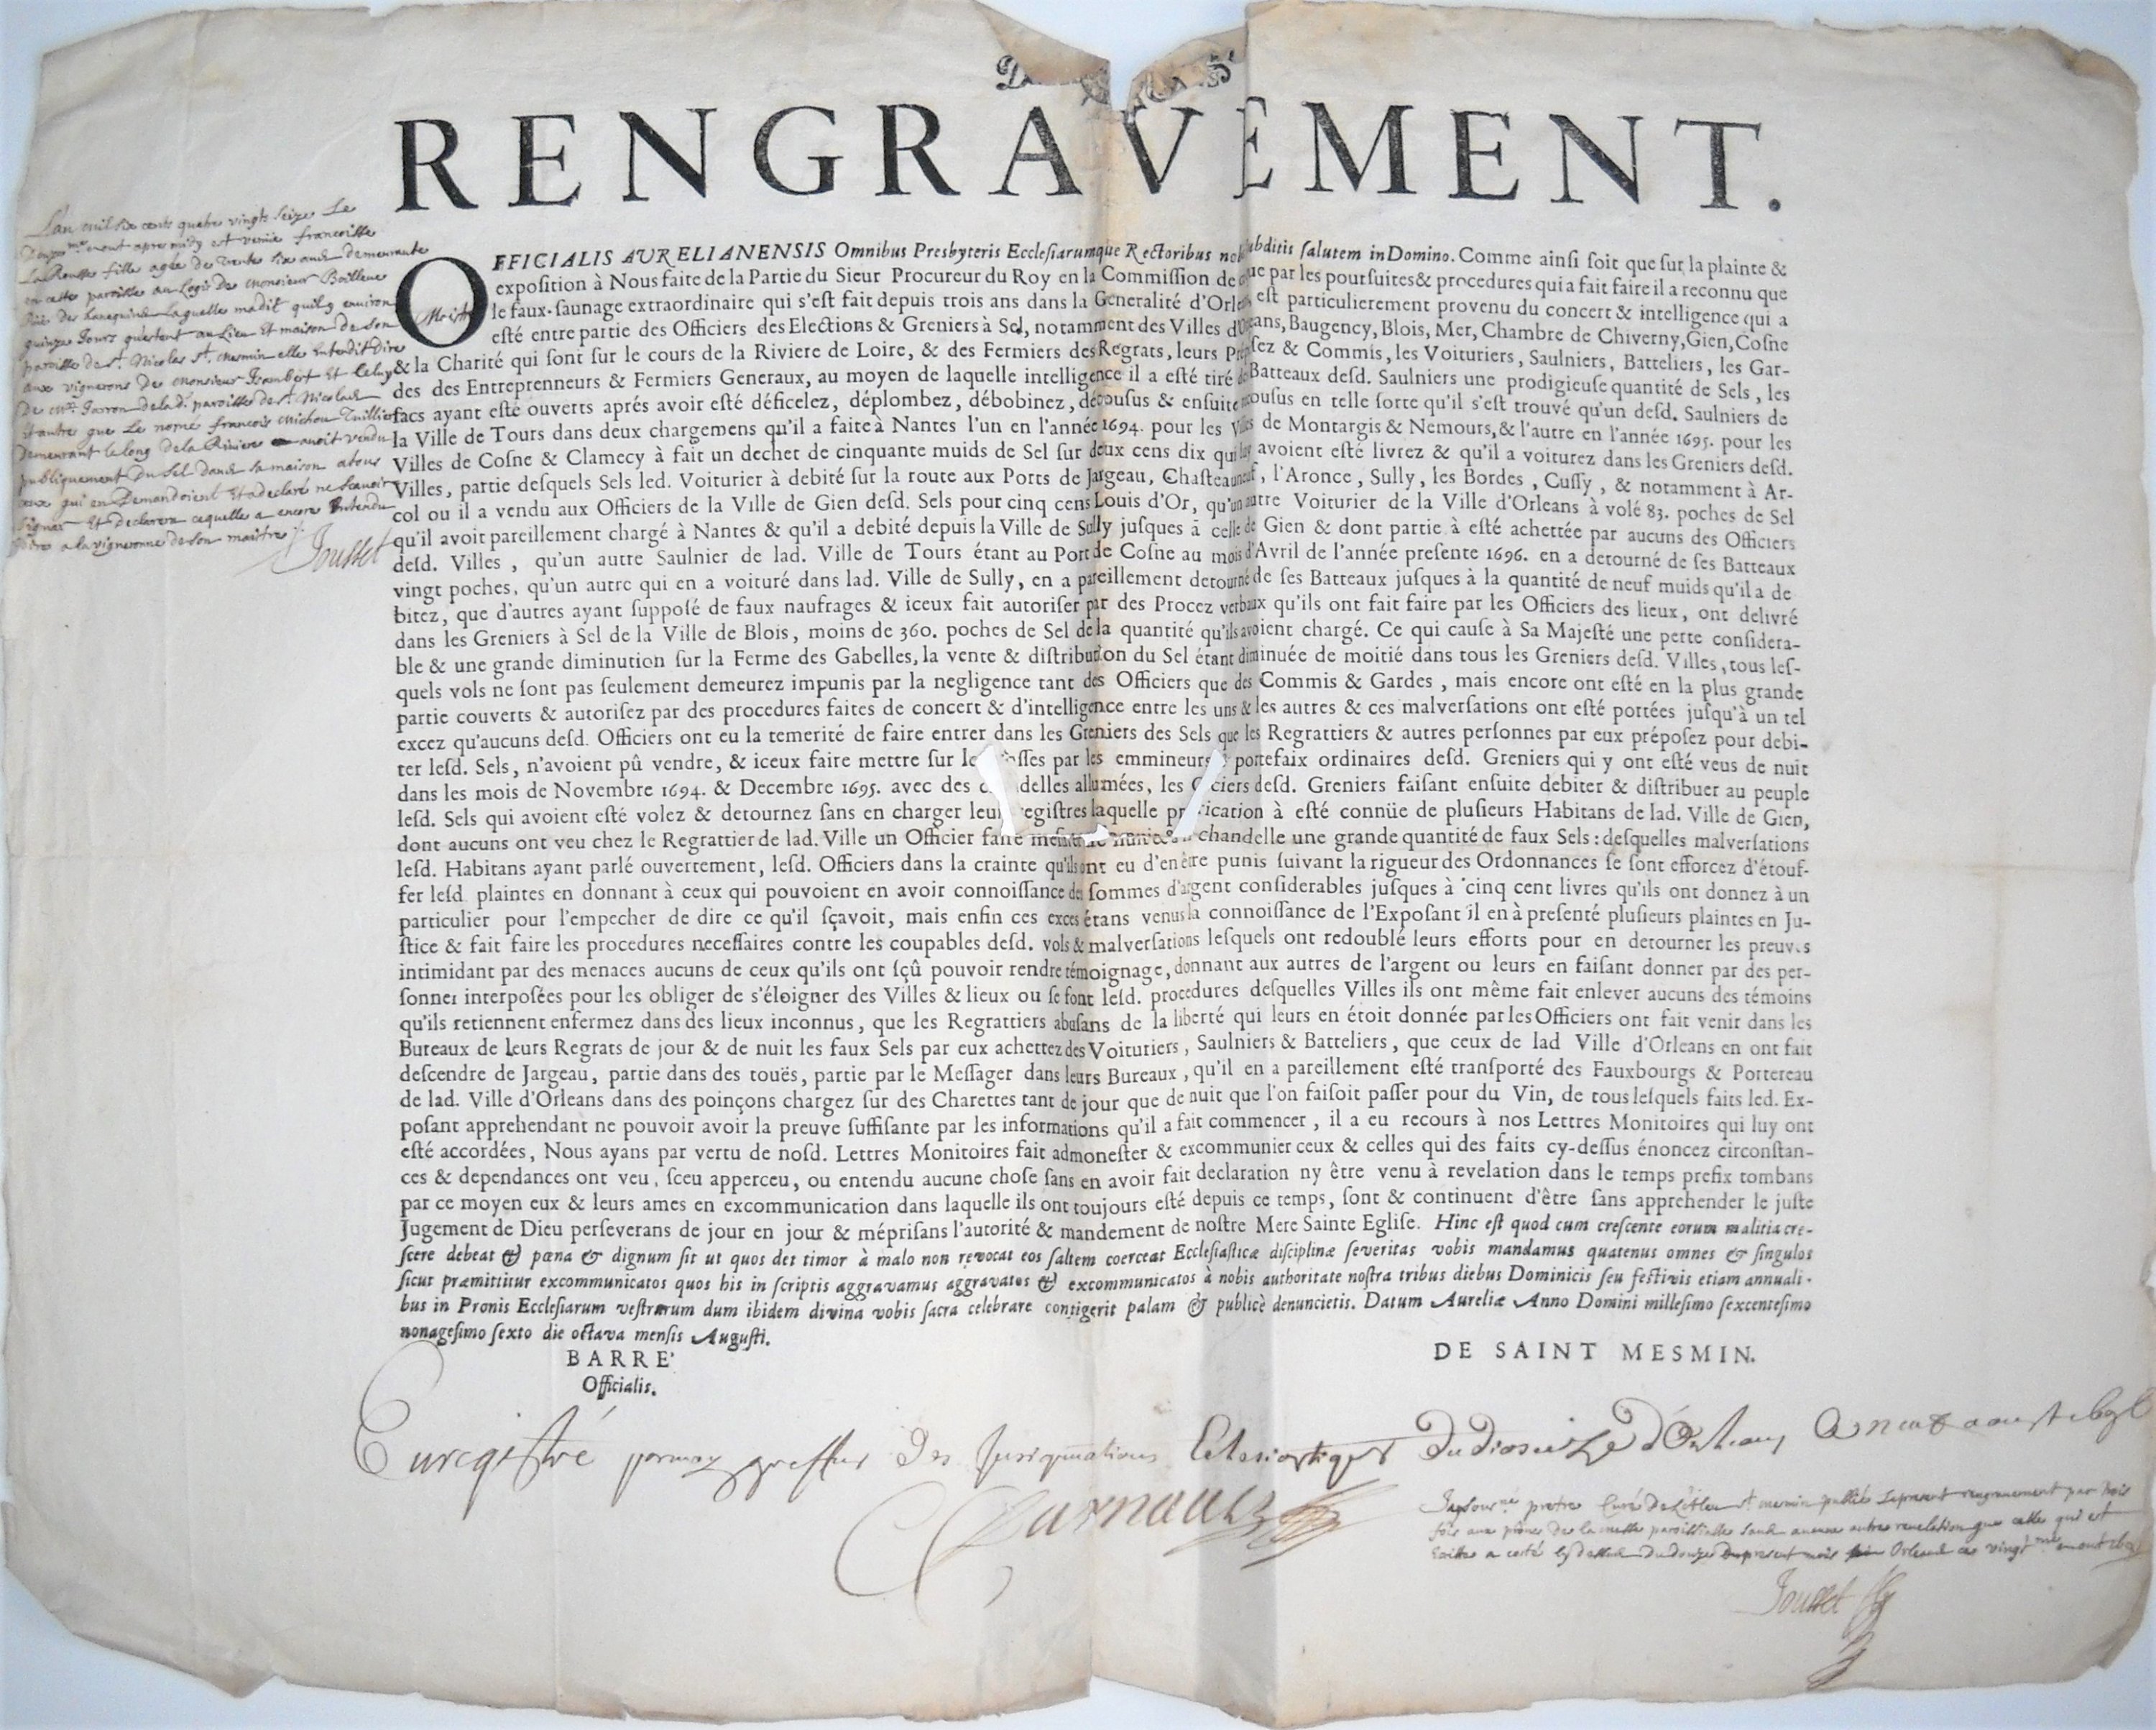 RENGRAVEMENT.
OFFICIALIS AURELIANENSIS Omnibus Presbyteris Ecclesiarumque Rectoribus salutem in Domino. Comme ainsi soit que sur la plainte &
exposition à Nous faite de la Partie du Sieur Procureur du Roy en la Commission de par les poursuites & procedures qui a fait faire il a reconnu que
le faux-saunage extraordinaire qui s'est fait depuis trois ans dans la Generalité d'Orleans est particulierement provenu du concert & intelligence qui a
esté entre partie des Officiers des Elections & Greniers à Sel, notamment des Villes d'Orleans, Baugency, Blois, Mer, Chambre de Chiverny, Gien, Cosne
& la Charité qui sont sur le cours de la Riviere de Loire, & des Fermiers des Regrats, leurs Préposez & Commis, les Voituriers, Saulniers, Batteliers, les Gar-
des des Entreprenneurs & Fermiers Generaux, au moyen de laquelle intelligence il a esté tiré des Batteaux desd. Saulniers une prodigieuse quantité de Sels, les
sacs ayant esté ouverts aprés avoir esté déficelez, déplombez, débobinez, décousus & ensuite recousus en telle sorte qu'il s'est trouvé qu'un desd. Saulniers de
la Ville de Tours dans deux chargemens qu'il a faite à Nantes l'un en l'année 1694. pour les Villes de Montargis & Nemours, & l'autre en l'année 1695. pour les
Villes de Cosne & Clamecy à fait un dechet de cinquante muids de Sel sur deux cens dix qui luy avoient esté livrez & qu'il a voiturez dans les Greniers desd.
Villes, partie desquels Sels led. Voiturier à debité sur la route aux Ports de Jargeau, Chasteauneuf, l'Aronce, Sully, les Bordes, Cussy, & notamment à Ar-
col ou il a vendu aux Officiers de la Ville de Gien desd. Sels pour cinq cens Louis d'Or, qu'un autre Voiturier de la Ville d'Orleans à volé 83. poches de Sel
qu'il avoit pareillement chargé à Nantes & qu'il a debité depuis la Ville de Sully jusques à celle de Gien & dont partie à esté achettée par aucuns des Officiers
desd. Villes, qu'un autre Saulnier de lad. Ville de Tours étant au Port de Cosne au mois d'Avril de l'année presente 1696. en a detourné de ses Batteaux
vingt poches, qu'un autre qui en a voituré dans lad. Ville de Sully, en a pareillement detourné de ses Batteaux jusques à la quantité de neuf muids qu'il a de
bitez, que d'autres ayant supposé de faux naufrages & iceux fait autoriser par des Procez verbaux qu'ils ont fait faire par les Officiers des lieux, ont delivré
dans les Greniers à Sel de la Ville de Blois, moins de 360. poches de Sel de la quantité qu'ils avoient chargé. Ce qui cause à Sa Majesté une perte considera-
ble & une grande diminution sur la Ferme des Gabelles, la vente & distribution du Sel étant diminuée de moitié dans tous les Greniers desd. Villes, tous les-
quels vols ne sont pas seulement demeurez impunis par la negligence tant des Officiers que des Commis & Gardes, mais encore ont esté en la plus grande
partie couverts & autorisez par des procedures faites de concert & d'intelligence entre les uns & les autres & ces malversations ont esté portées jusqu'à un tel
excez qu'aucuns desd. Officiers ont eu la temerité de faire entrer dans les Greniers des Sels que les Regrattiers & autres personnes par eux préposez pour debi-
ter lesd. Sels, n'avoient pû vendre, & iceux faire mettre sur les par les emmineurs portefaix ordinaires desd. Greniers qui y ont esté veus de nuit
dans les mois de Novembre 1694. & Decembre 1695. avec des chandelles allumées, les Officiers desd. Greniers faisant ensuite debiter & distribuer au peuple
lesd. Sels qui avoient esté volez & detournez sans en charger leur registres laquelle à esté connüe de plusieurs Habitans de lad. Ville de Gien,
dont aucuns ont veu chez le Regrattier de lad. Ville un Officier faire chandelle une grande quantité de faux Sels : desquelles malversations
lesd. Habitans ayant parlé ouvertement, lesd. Officiers dans la crainte qu'ils ont eu d'en être punis suivant la rigueur des Ordonnances se sont efforcez d'étouf-
fer lesd plaintes en donnant à ceux qui pouvoient en avoir connoissance des sommes d'argent considerables jusques à cinq cent livres qu'ils ont donnez à un
particulier pour l'empecher de dire ce qu'il sçavoit, mais enfin ces exces étans venus la connoissance de l'Exposant il en à presenté plusieurs plaintes en Ju-
stice & fait faire les procedures necessaires contre les coupables desd. vols & malversations lesquels ont redoublé leurs efforts pour en detourner les preuves
intimidant par des menaces aucuns de ceux qu'ils ont sçû pouvoir rendre témoignage, donnant aux autres de l'argent ou leurs en faisant donner par des per-
sonnes interposées pour les obliger de s'éloigner des Villes & lieux ou se font lesd. procedures desquelles Villes ils ont même fait enlever aucuns des témoins
qu'ils retiennent enfermez dans des lieux inconnus, que les Regrattiers abusans de la liberté qui leurs en étoit donnée par les Officiers ont fait venir dans les
Bureaux de leurs Regrats de jour & de nuit les faux Sels par eux achettez des Voituriers, Saulniers & Batteliers, que ceux de lad Ville d'Orleans en ont fait
descendre de Jargeau, partie dans des touës, partie par le Messager dans leurs Bureaux, qu'il en a pareillement esté transporté des Fauxbourgs & Portereau
de lad. Ville d'Orleans dans des poinçons chargez sur des Charettes tant de jour que de nuit que l'on faisoit passer pour du Vin, de tous lesquels faits led. Ex-
posant apprehendant ne pouvoir avoir la preuve suffisante par les informations qu'il a fait commencer, il a eu recours à nos Lettres Monitoires qui luy ont
esté accordées, Nous ayans par vertu de nosd. Lettres Monitoires fait admonester & excommunier ceux & celles qui des faits cy-dessus énoncez circonstan-
ces & dependances ont veu, sceu apperceu, ou entendu aucune chose sans en avoir fait declaration ny être venu à revelation dans le temps prefix tombans
par ce moyen eux & leurs ames en excommunication dans laquelle ils ont toujours esté depuis ce temps, sont & continuent d'être sans apprehender le juste
Jugement de Dieu perseverans de jour en jour & méprisans l'autorité & mandement de nostre Mere Sainte Eglise. Hinc est quod cum crescente eorum malitia cre-
scere debeat & pœna & dignum sit ut quos dei timor à malo non revocat eos saltem coerceat Ecclesiasticæ disciplinæ severitas vobis mandamus quatenus omnes & singulos
sicut præmittitur excommunicatos quos his in scriptis aggravamus aggravatos & excommunicatos à nobis authoritate nostra tribus diebus Dominicis seu festivis etiam annuali-
bus in Pronis Ecclesiarum vestrarum dum ibidem divina vobis sacra celebrare contigerit palam & publicè denuncietis. Datum Aureliæ Anno Domini millesimo sexcentesimo
nonagesimo sexto die octava mensis Augusti.
BARRE'
Officialis.
DE SAINT MESMIN.
L'an mil six cents quatre vingts seize Le
aoust apres midy est venüe francoise
La Rousse fille agée de trente six ans demeurante
en cette paroisse au Logis de Monsieur
laquelle madit quil y environ
quinze Jours questant au Lieu Et maison de son
paroisse de St. Nicolas St. mesmin elle Entendit dire
aux vignerons de Monsieur Et
de la d. paroisse de St. Nicolas
Et autre que Le nomé francois Michou
Demeurant le long de la Riviere avoit vendu
publiquement Du Sel dans sa maison a tous
ceux qui en Demandoient Et a declaré ne scavoir
signer Et declarera ce quelle a encore Entendu
dire a la vigneronne de son maitre
Jousset
Enregistré par moy greffier Des Ecclesiastiques Du Diocese D'Orleans Ce neuf aoust
pretre Curé de St mesmin publié Le present rengravement par trois
fois aux prônes de la messe paroissialle sans aucune autre revelation que celle qui est
Du douze Du present mois Orleans ce vingt
Jousset